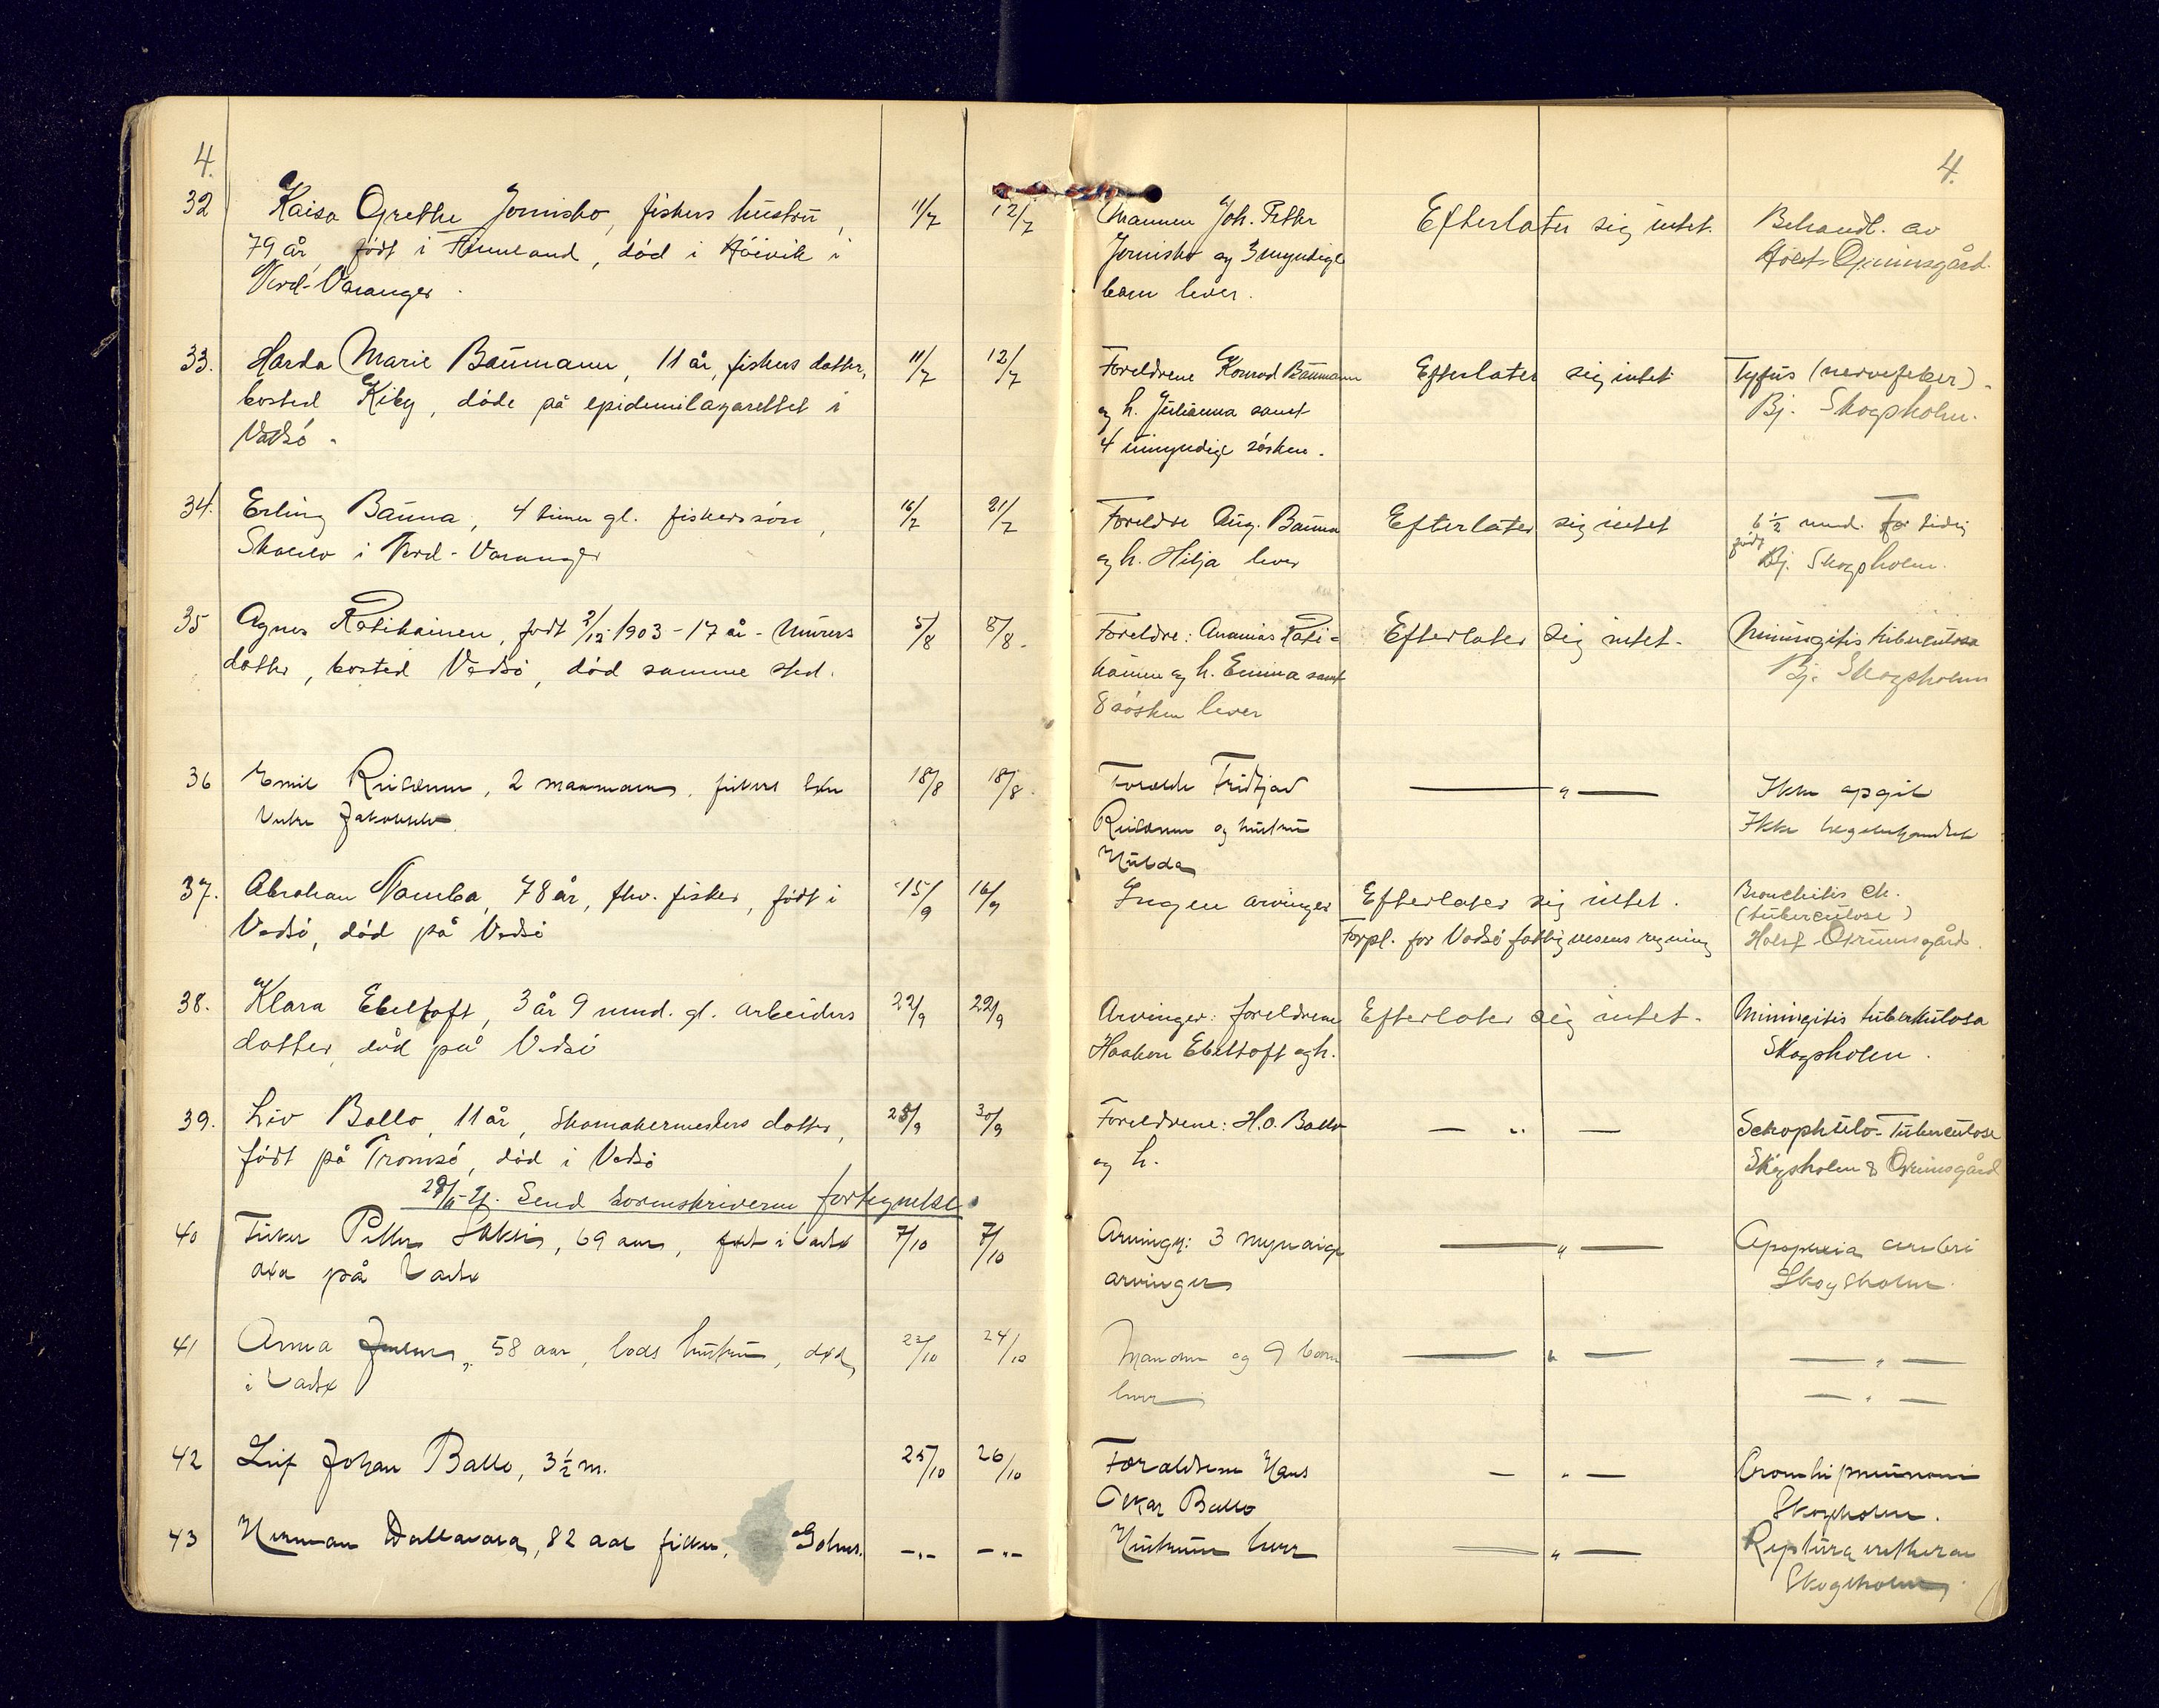 4.
4.
32 Kaisa Grethe Jomisko, fiskers hustru, 11/7 12/7 Mannen Joh. Petter Efterlater sig intet. Behandl. av
79 år, født i, død i Höivik i Jomisko og 3 myndige Holst-Grimsgård.
Nord-Varanger. barn lever.
33. Harda Marie Baumann, 11 år, fiskers datter, 11/7 12/7 Foreldrene Konrad Baumann Efterlater sig intet Tyfus (nervefeber).
bosted Kiby, døde på epidemilazarettet i og h. Julianna samt Bj. Skogsholm.
Vadsö. 4 umyndige sösken.
34. Erling Bauna, 4 timer gl. fiskers sön, 16/7 21/7 Foreldre Aug. Bauna Efterlater sig intet 6 1/2 mnd. For tidig
i Nord-Varanger og h. Hilja lever født Bj. Skogsholm.
35 Agnes Patikainen, født 2/12 1903 - 17 år - murers 5/8 8/8. Foreldre: Ananias Pati= Efterlater sig intet. Miningitis tuberculosa
datter, bosted Vadsö, död samme sted. kainen og h. Emma samt Bj. Skogsholm
8 sösken lever
36 Emil, 2 maaneder, fiskers søn 18/8 18/8. Foreldre Fridtjov — " — Ikke opgit
Vestre Jakobselv og hustru Ikke lægebehandlet
Hulda
37. Abraham Namba, 78 år, fhv. fisker, född i 15/9 16/9 Ingen arvinger Efterlater sig intet. Bronchitis ch.
Vadsö, död på Vadsö Forpl. for Vadsö fattigvesens regning (tuberculose)
Holst-Grimsgård.
38. Klara Ebeltoft, 3 år 9 mnd. gl. arbeiders 22/9 22/9 Arvinger: foreldrene Efterlater sig intet. Miningitis tuberkulosa
datter, död på Vadsö Haakon Ebeltoft og h. Skogsholm.
39. Liv Ballo, 11 år, skomakermesters datter, 28/9 30/9 Foreldrene: H.O. Ballo — " — Schrophulo-Tuberculose
född på Tromsö, död i Vadsö og h. Skogsholm & Grimsgård
Send sorenskriveren fortegnelse.
40 Fisker Petter, 69 aar, født i Vadsø 7/10 7/10 Arvinger: 3 myndige — " — Apoplexia cerebri
død på Vadsø arvinger Skogsholm.
41 Anna, 58 aar, lods hustru, død 23/10 24/10 Manden og 9 børn — " — — " —
i Vadsø lever — " —
42 Leif Johan Ballo, 3 1/2 m. 25/10 26/10 Forældrene Hans — " —
Oskar Ballo Skogsholm.
43 Herman Wallavara, 82 aar fisker, — " — — " — Hustruen lever — " — Ruptura
Skogsholm.